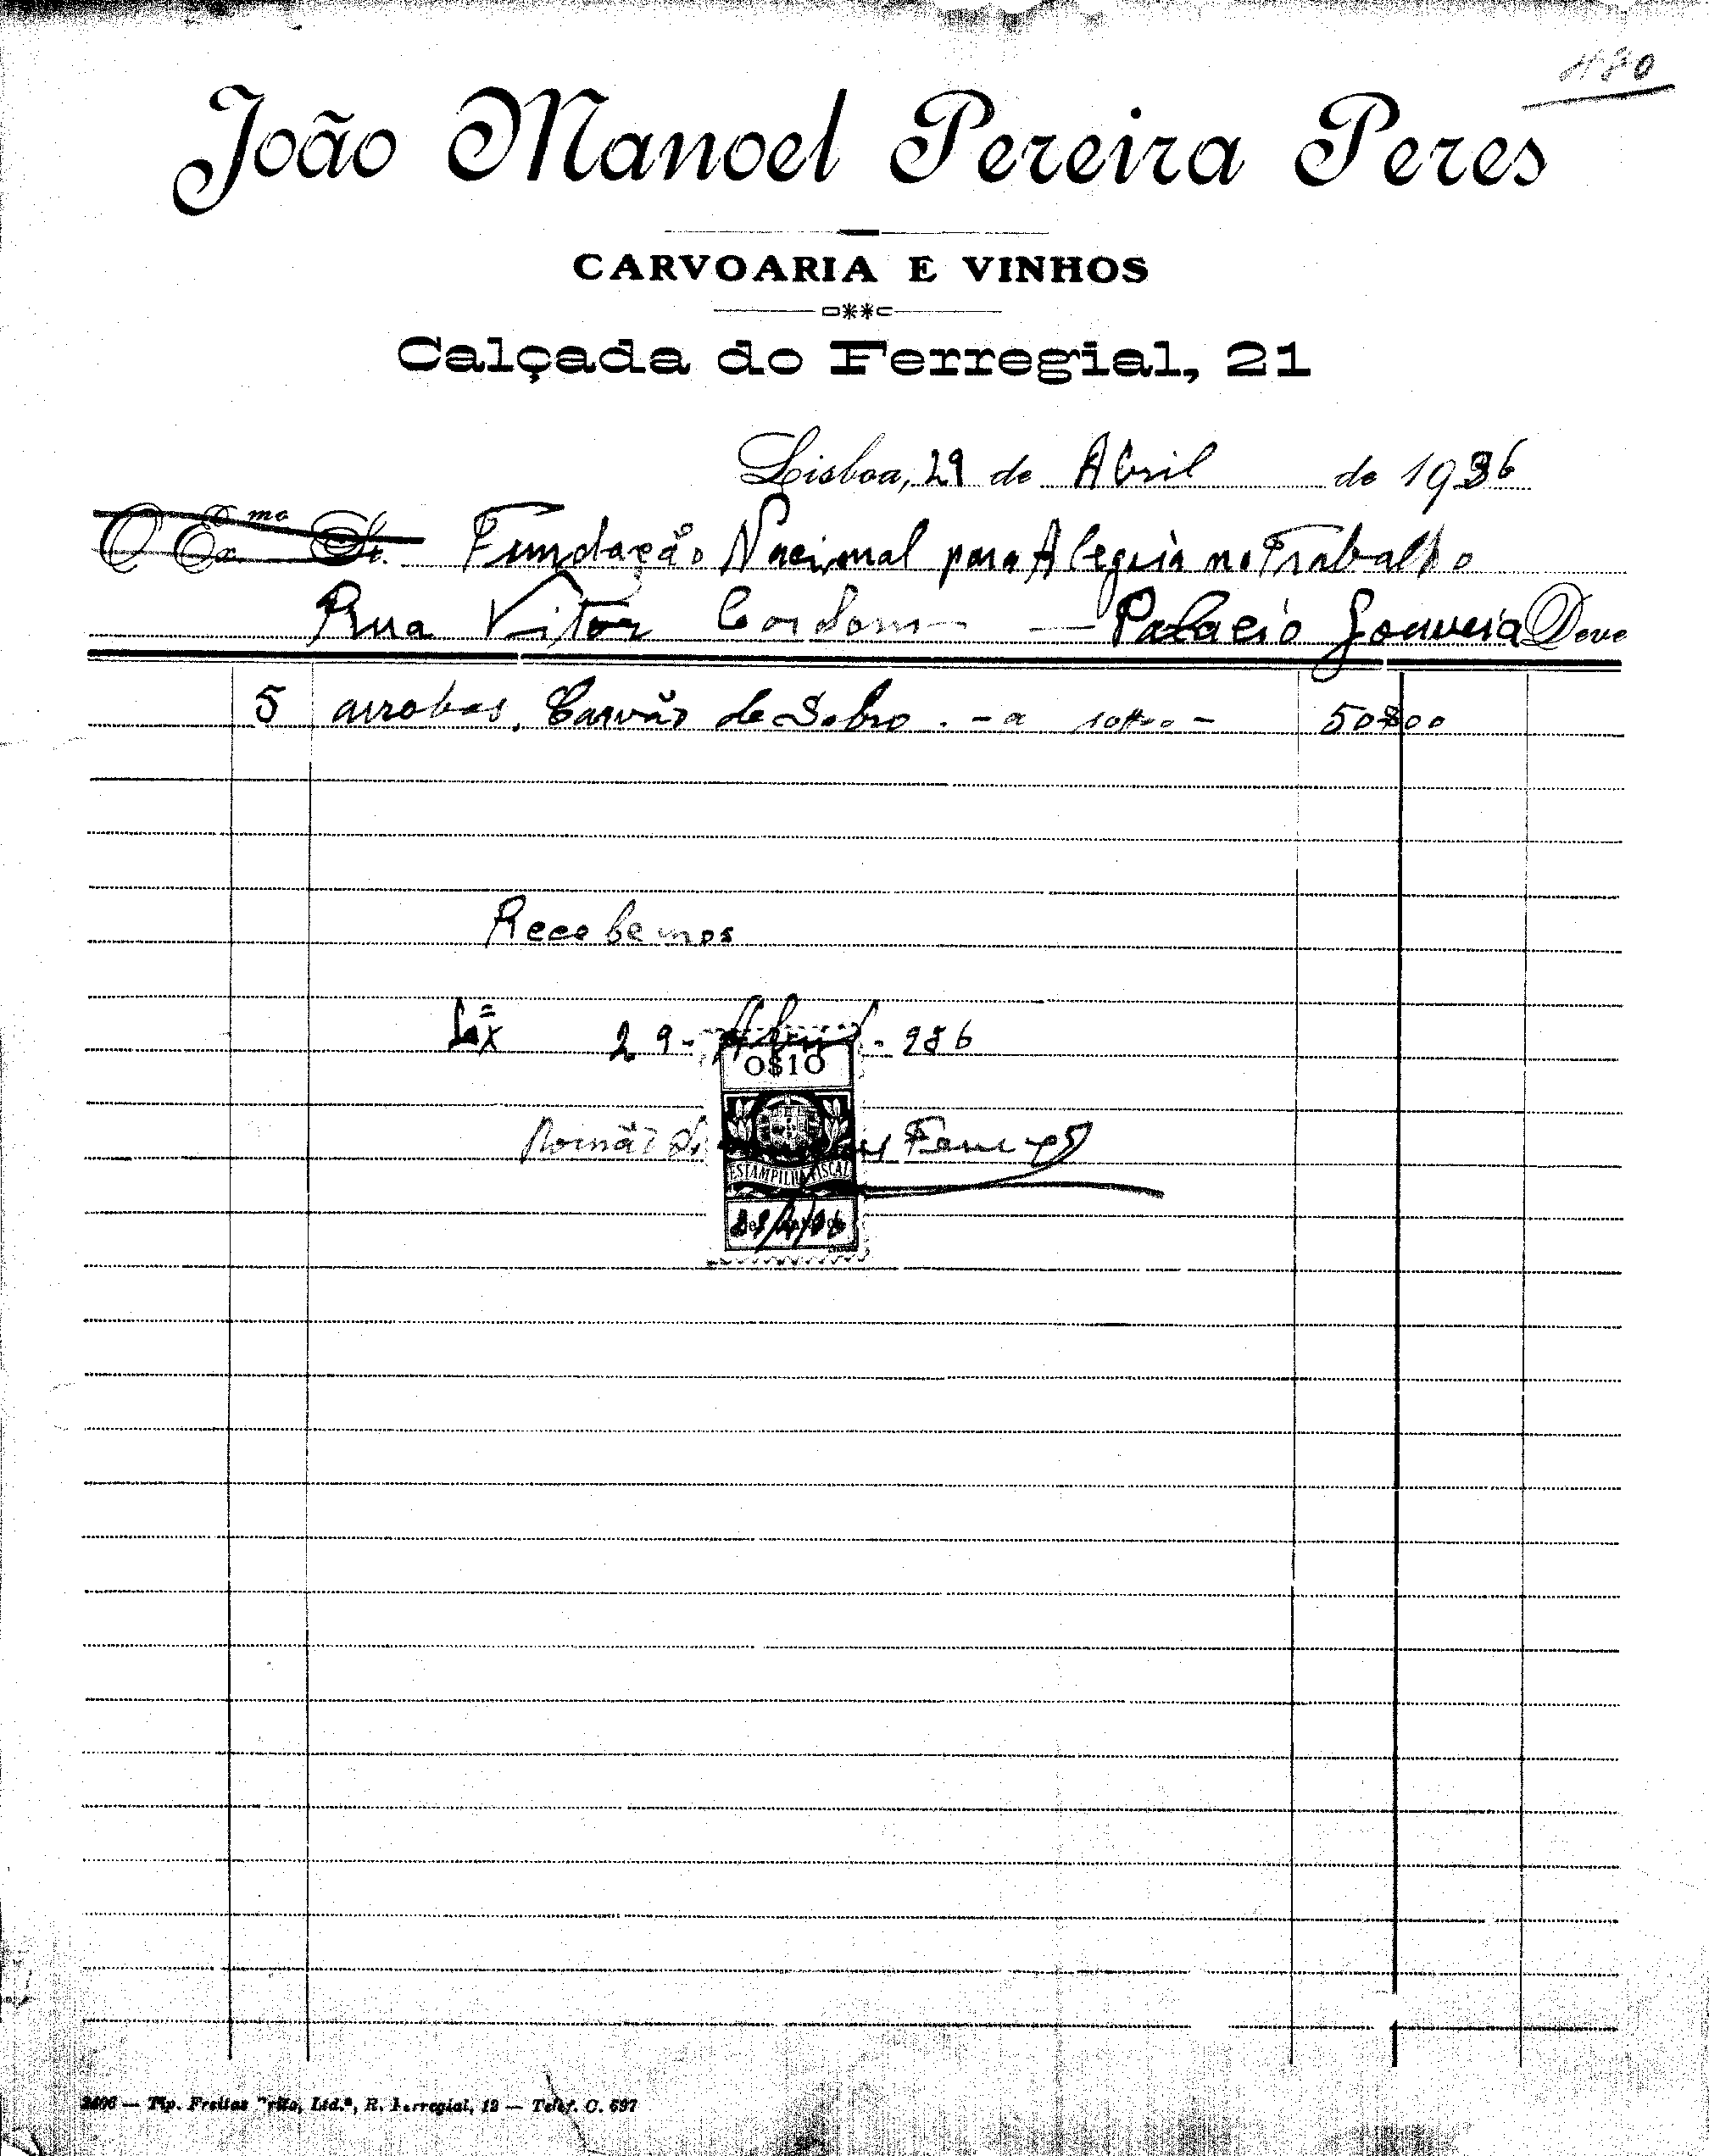 1180
João Manoel Pereira Peres
CARVOARIA E VINHOS
Calçada do Ferregial, 21
Lisboa, 29 de Abril de 1936
O Ex.mo Sr. Fundação Nacional para Alegria no Trabalho
Rua Vitor Cordon — Palacio Gouveia Deve
5 arrobas, Carvão de Sobro. - a 10$00 - 50$00
Recebemos
Lxª 29 - Abril - 936
0$10
Romão
ESTAMPILHA FISCAL
29/4/36
2406 — Tip. Freitas Brito, Ltd.ª, R. Ferregial, 12 — Telef. C. 697